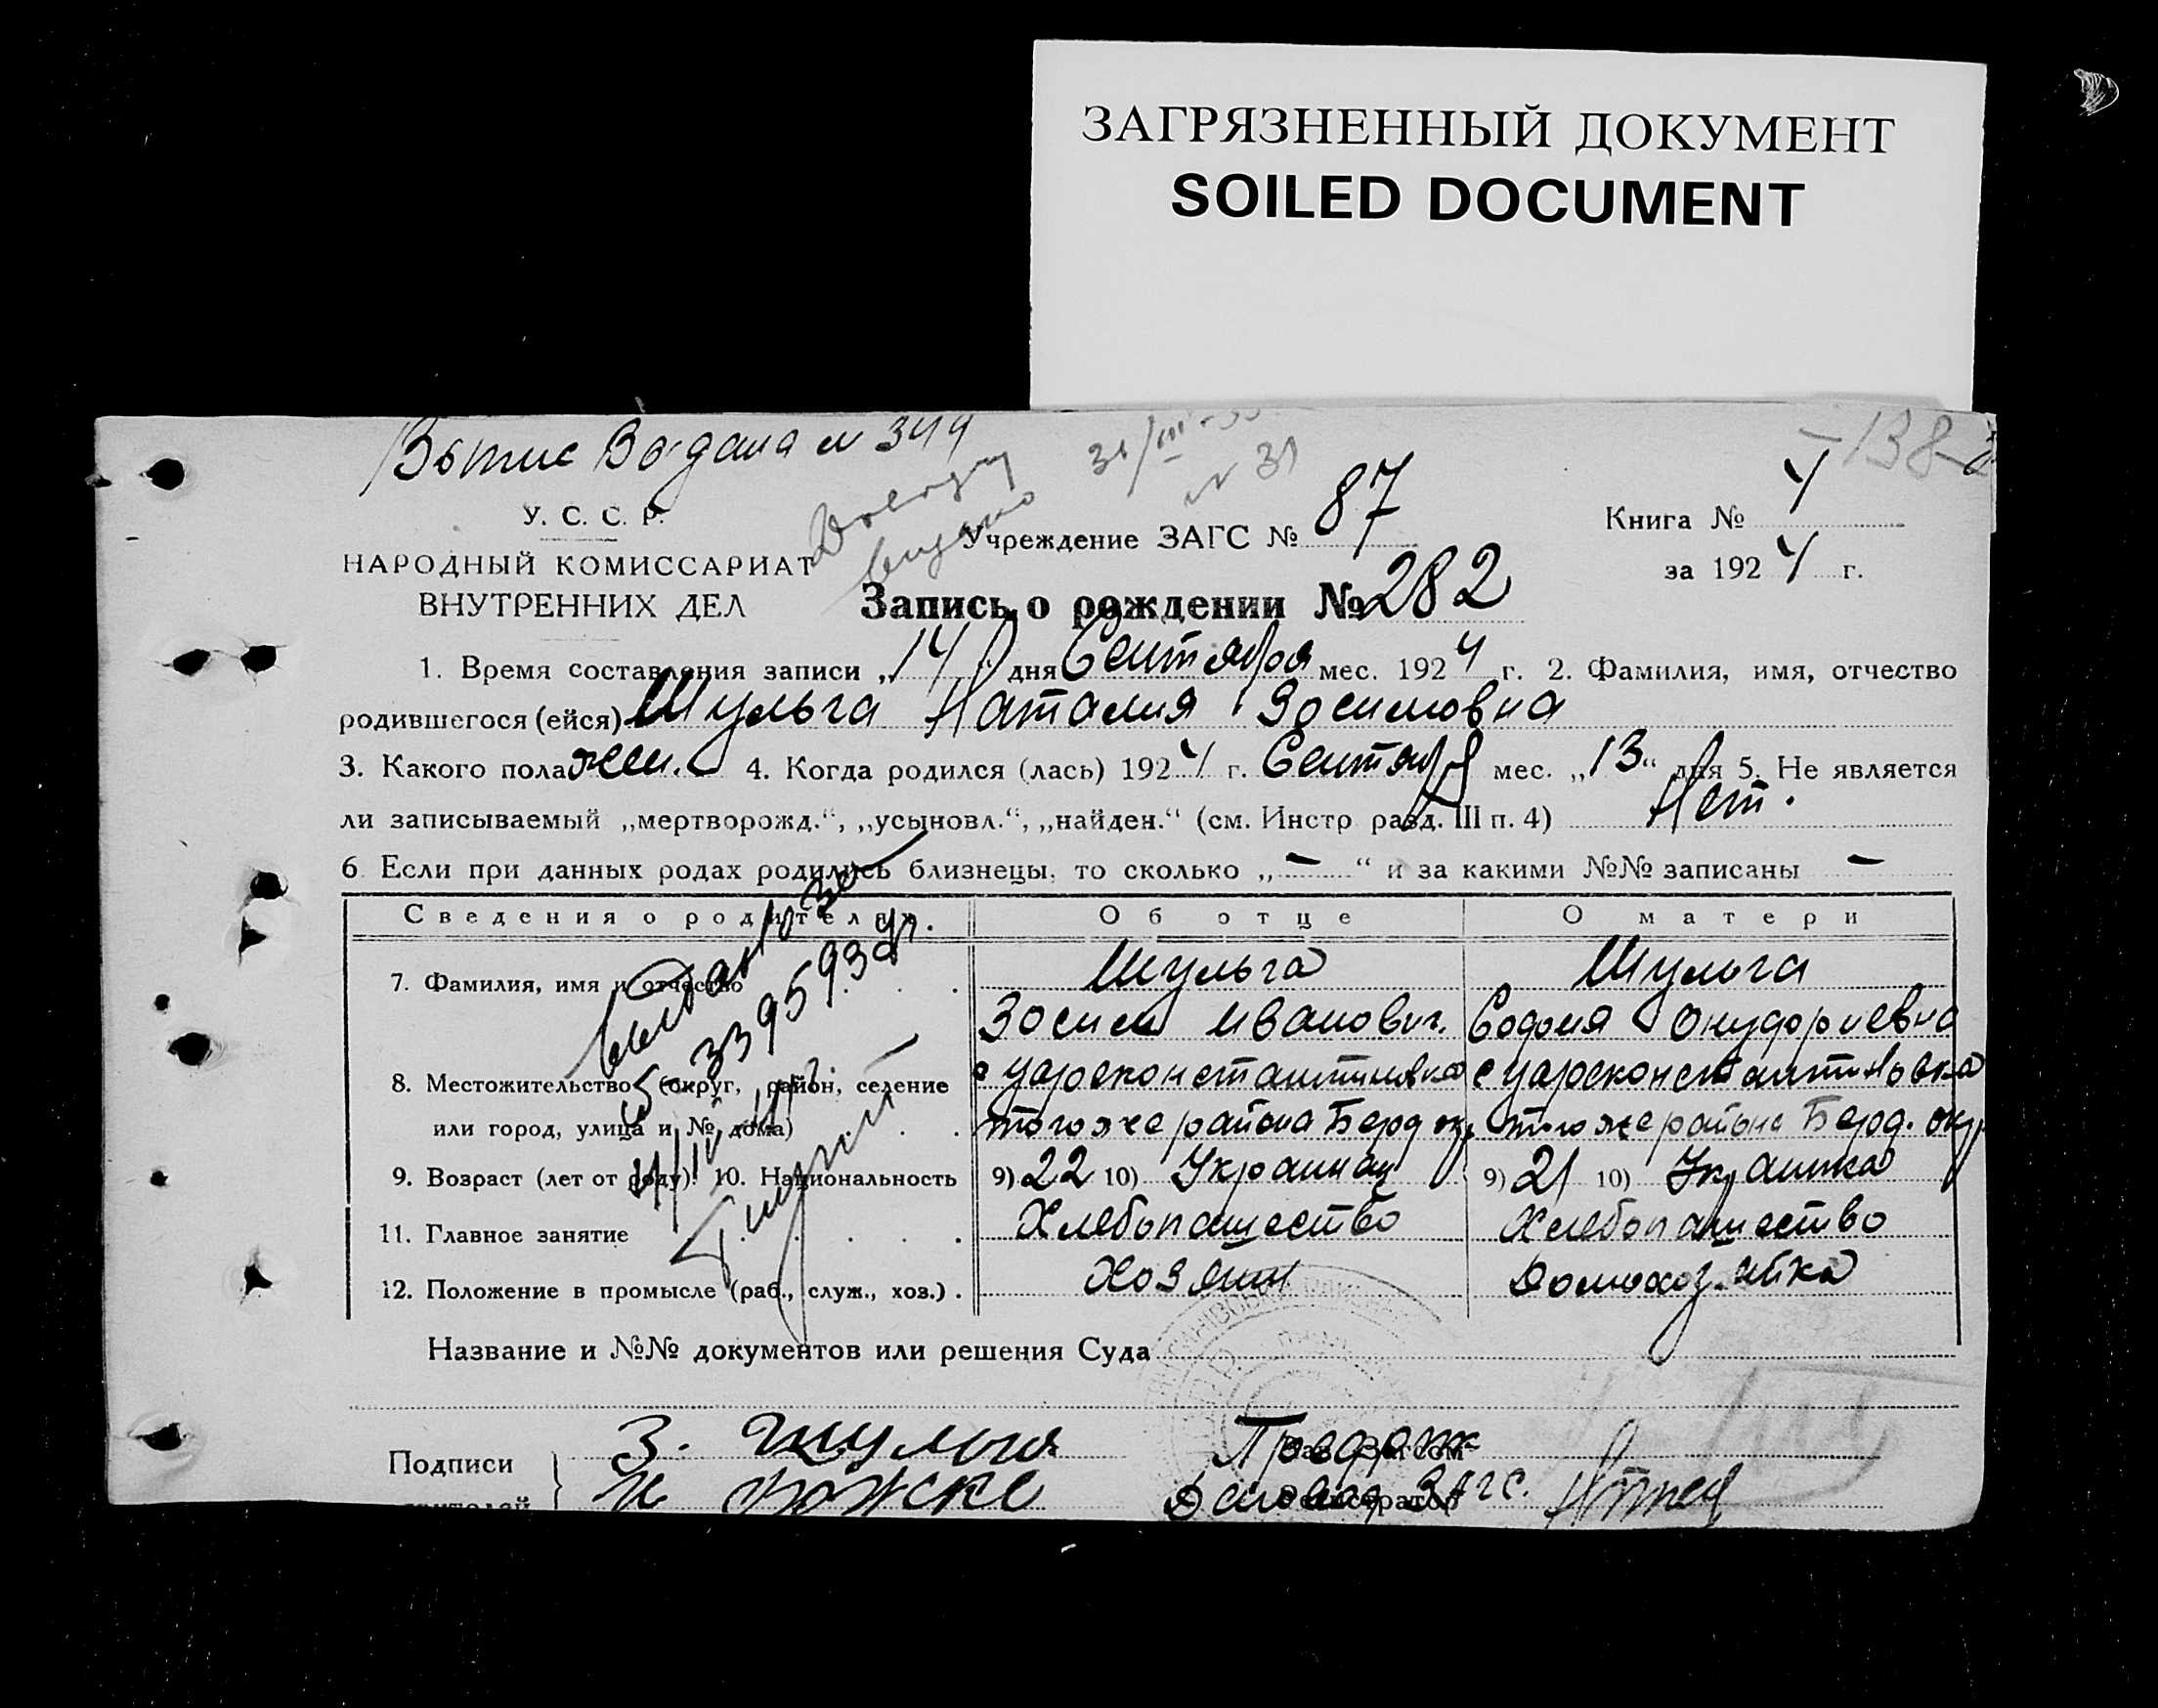 ЗАГРЯЗНЕННЫЙ ДОКУМЕНТ
SOILED DOCUMENT
№ 31
У. С. С. Р.
НАРОДНЫЙ КОМИССАРИАТ
ВНУТРЕННИХ ДЕЛ
Учреждение ЗАГС № 87
Книга № 4
за 1924 г.
Запись о рождении № 282
1. Время составления записи „14“ дня Сентября мес. 1924 г. 2. Фамилия, имя, отчество
родившегося (ейся) Шульга Наталия Зосимовна
3. Какого пола жен. 4. Когда родился (лась) 1924 г. Сентября мес. „13“ дня 5. Не является
ли записываемый „мертворожд.“, „усыновл.“, „найден.“ (см. Инстр разд. III п. 4) Нет.
6 Если при данных родах родились близнецы, то сколько „—“ и за какими №№ записаны —
Сведения о родителях. Об отце О матери
7. Фамилия, имя и отчество Шульга Шульга
Зосим Иванович. София Онуфриевна
8. Местожительство (округ, район, селение с Цареконстантиновка с Цареконстантиновка
или город, улица и № дома) того же района Берд окр. того же района Берд. окр
9. Возраст (лет от роду). 10. Национальность 9) 22 10) Украинец 9) 21 10) Украинка
11. Главное занятие Хлебопашество Хлебопашество
12. Положение в промысле (раб., служ., хоз.) Хозяин Домохоз-йка
Название и №№ документов или решения Суда
Подписи З. Шульга
Регистратор